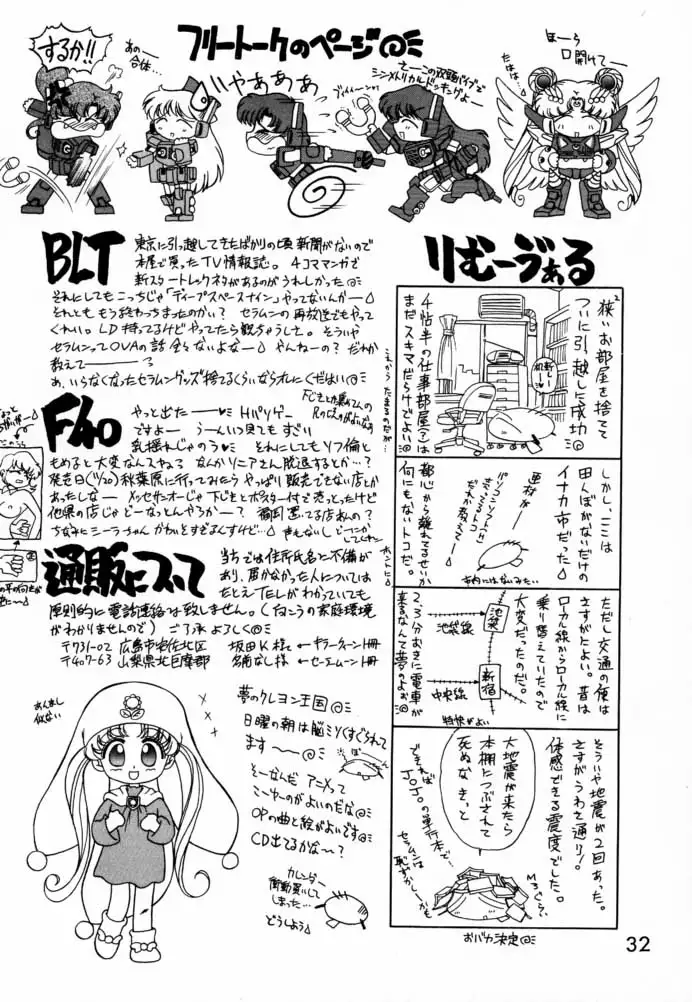 フリートークのページ@ミ
するか!!
あのー
合体…
いやああああ
さーこの双頭バイブで
シンメトリカルドッキングよー
ほーら
口開けてー
たはは。
BLT
東京に引っ越してきたばかりの頃新聞がないので
本屋で買ったTV情報誌。 4コママンガで
新スタートレックネタがあるのがうれしかった@
それにしてもこっちじゃ「ディープスペースナイン」やってないんかー
それとももう終わっちまったのかい? セラムンの再放送でもやって
くれい。LD持ってるけどやってたら観ちゃうしさ。そういや
セラムンってOVAの話全々ないよなー やんねーの? だれか
教えてー
あ、いらなくなったセラムングッズ捨てるくらいならオレにくだはい@ミ
F40
やっと出たー Hパソゲー
ですよー うーんいつ見てもすごい
乳揺れじゃのう それにしてもソフ倫と
もめると大変なんスやろ? なんかソニアさん脱退するとか…?
発売日(11/20)秋葉原に行ってみたらやっぱり販売できない店とか
あったしなー メッセサンオーじゃ下じきとポスター付で売っとったけど
他県の店じゃどーなっとんやろかー?
ちなみにシーラちゃんかわいすぎるんすけど…
通販について
当方では住所氏名に不備が
あり、届かなかった人については
たとえTELがわかっていても
原則的に電話連絡は致しません。(向こうの家庭環境
がわかりませんので) ご了承よろしく@ミ
〒731-02 広島市安佐北区 坂田K.様
〒407-63 山梨県北巨摩郡 名前なし様
あんまし
似ない
夢のクレヨン王国@ミ
日曜の朝は脳ミソくすぐられて
ます〜@ミ
そーなんだ アニメって
こーゆーのがよいのだな@ミ
OPの曲と絵がよいです@ミ
CD出てるかな〜?
カレンダー
衝動買いして
しまった…
どうしよう
りむーゔぁる
狭いお部屋を捨てて
ついに引越しに成功@
新しい
机
4帖半の仕事部屋(?)は
まだスキマだらけでよい@
しかしここは
田んぼがないだけの
イナカ市だった
パソコンソフトは
どこに売ってるトコ
だれか教えてー
市内にはないみたい
都心から離れてるせいか
何にもないトコだ。
ただし交通の便は
さすがによい。昔は
ローカル線からローカル線に
乗り替えていたので
大変だったのだ。
池袋
池袋線
新宿
中央線
特快がよい
2、3分おきに電車が
来るなんて夢のよお@
そういや地震が2回あった。
さすがうわさ通り!
体感できる震度でした。
大地震が来たら
本棚につぶされて
死ぬなきっと
できれば
JOJOの単行本で…
セラムンは
恥ずかしーかも
おバカ決定@ミ
32